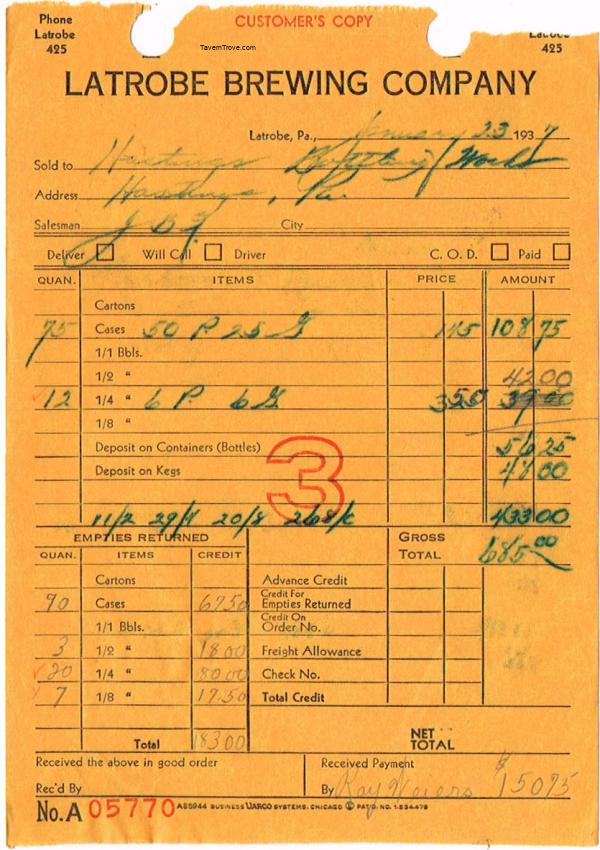 CUSTOMER'S COPY
Phone
Latrobe
425
TavernTrove.com
Latrobe
425
LATROBE BREWING COMPANY
Latrobe, Pa., January 23 1937
Sold to Hastings Bottling Works
Address Hastings, Pa.
Salesman J B F City
Deliver Will Call Driver C. O. D. Paid
QUAN. ITEMS PRICE AMOUNT
Cartons
75 Cases 50 P. 25 G 145 108 75
1/1 Bbls.
1/2 " 42 00
12 1/4 " 6 P. 6 G 350 39 00
1/8 "
Deposit on Containers (Bottles) 56 25
Deposit on Kegs 48 00
3
11/2 29/4 20/8 268/c 433 00
EMPTIES RETURNED GROSS TOTAL 685.00
QUAN. ITEMS CREDIT
Cartons Advance Credit
90 Cases 67.50 Credit For Empties Returned
1/1 Bbls. Credit On Order No.
3 1/2 " 18 00 Freight Allowance
20 1/4 " 80 00 Check No.
7 1/8 " 17.50 Total Credit
Total 183 00 NET TOTAL
Received the above in good order Received Payment
Rec'd By By Ray Weiers $150 75
No. A 05770 A85944 BUSINESS UARCO SYSTEMS. CHICAGO PAT'D. NO. 1.534.479